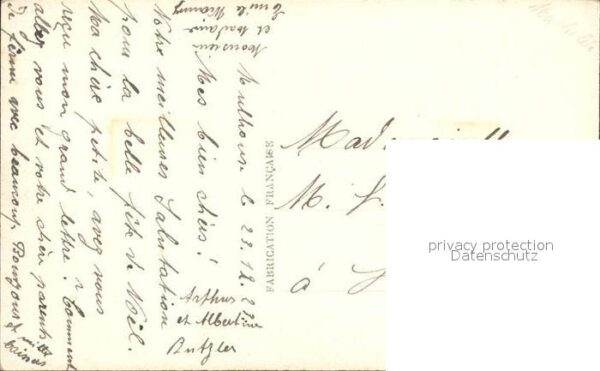 Mulhouse le 23.12.22
Mes bien chers!
Notre meilleures Salutation
pour la belle fête de Noël.
Ma chère petite, avez vous
reçu mon grand lettre? Comment
allez vous et votre chère parents
Je ferme avec beaucoup Bonjours et
baises
Arthur
et Albertine
Butzler
Monsieur
et Madame
Emile
FABRICATION FRANÇAISE
Mademoiselle
M.
à
privacy protection
Datenschutz